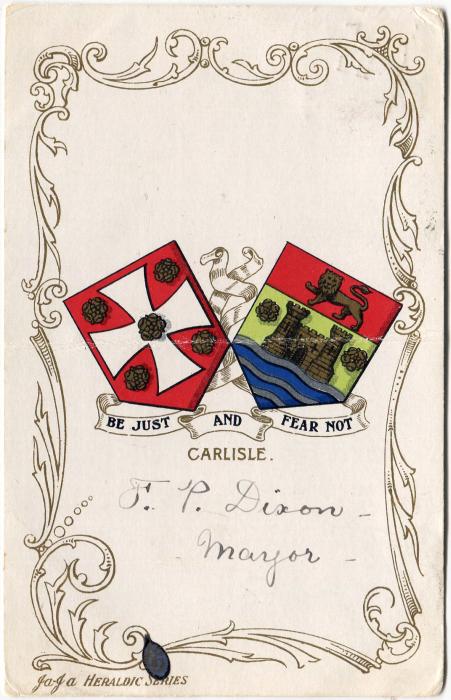 BE JUST AND FEAR NOT
CARLISLE.
F. P. Dixon -
- Mayor -
Ja-Ja HERALDIC SERIES